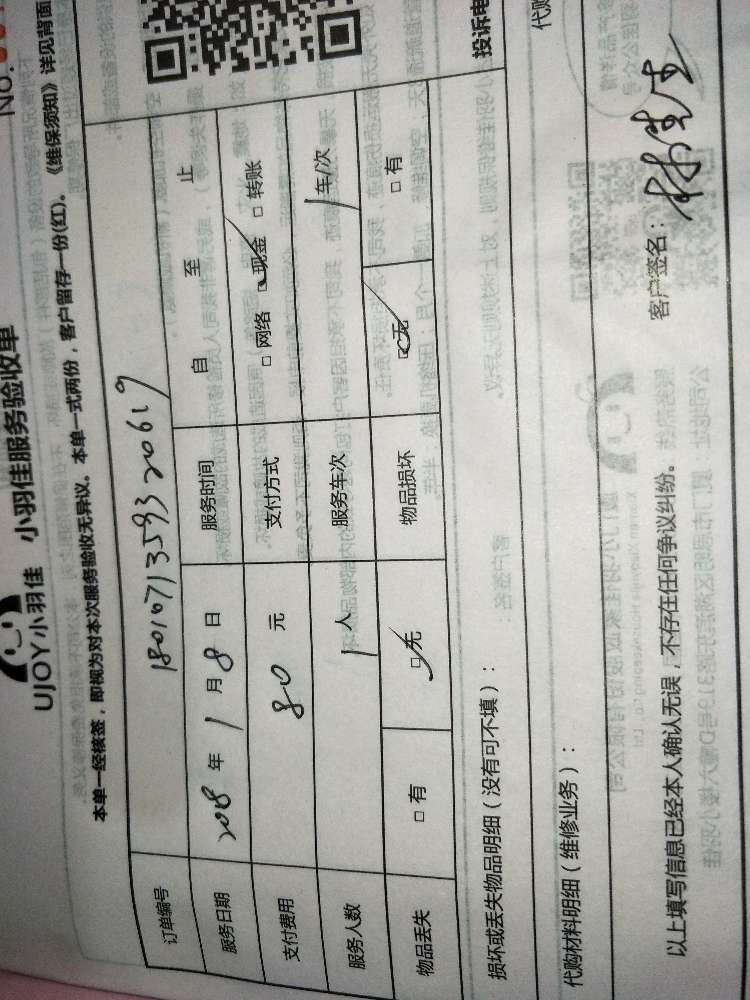 NO.
UJOY小羽佳 小羽佳服务验收单
本单一经核签，即视为对本次服务验收无异议。本单一式两份，客户留存一份(红)。《维保须知》详见背面
订单编号 1801071359320619
服务日期 2018年1月8日 服务时间 自 至 止
支付费用 80元 支付方式 □网络 □现金 □转账
服务人数 1人 服务车次 1车/次
物品丢失 □有 □无 物品损坏 □无 □有
损坏或丢失物品明细（没有可不填）：
投诉电
代购材料明细（维修业务）：
代购
以上填写信息已经本人确认无误，不存在任何争议纠纷。 客户签名：